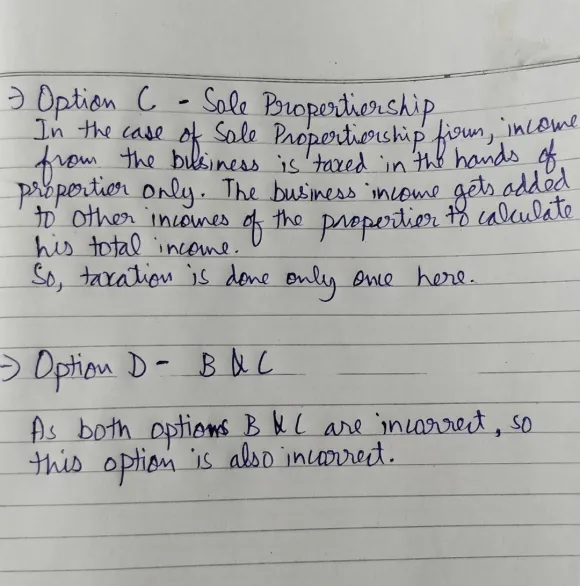 → Option C - Sole Propertiership
In the case of Sole Propertiorship firm, income
from the business is taxed in the hands of
propertier only. The business income gets added
to other incomes of the propertier to calculate
his total income.
So, taxation is done only once here.
→ Option D - B & C
As both options B & C are incorrect, so
this option is also incorrect.